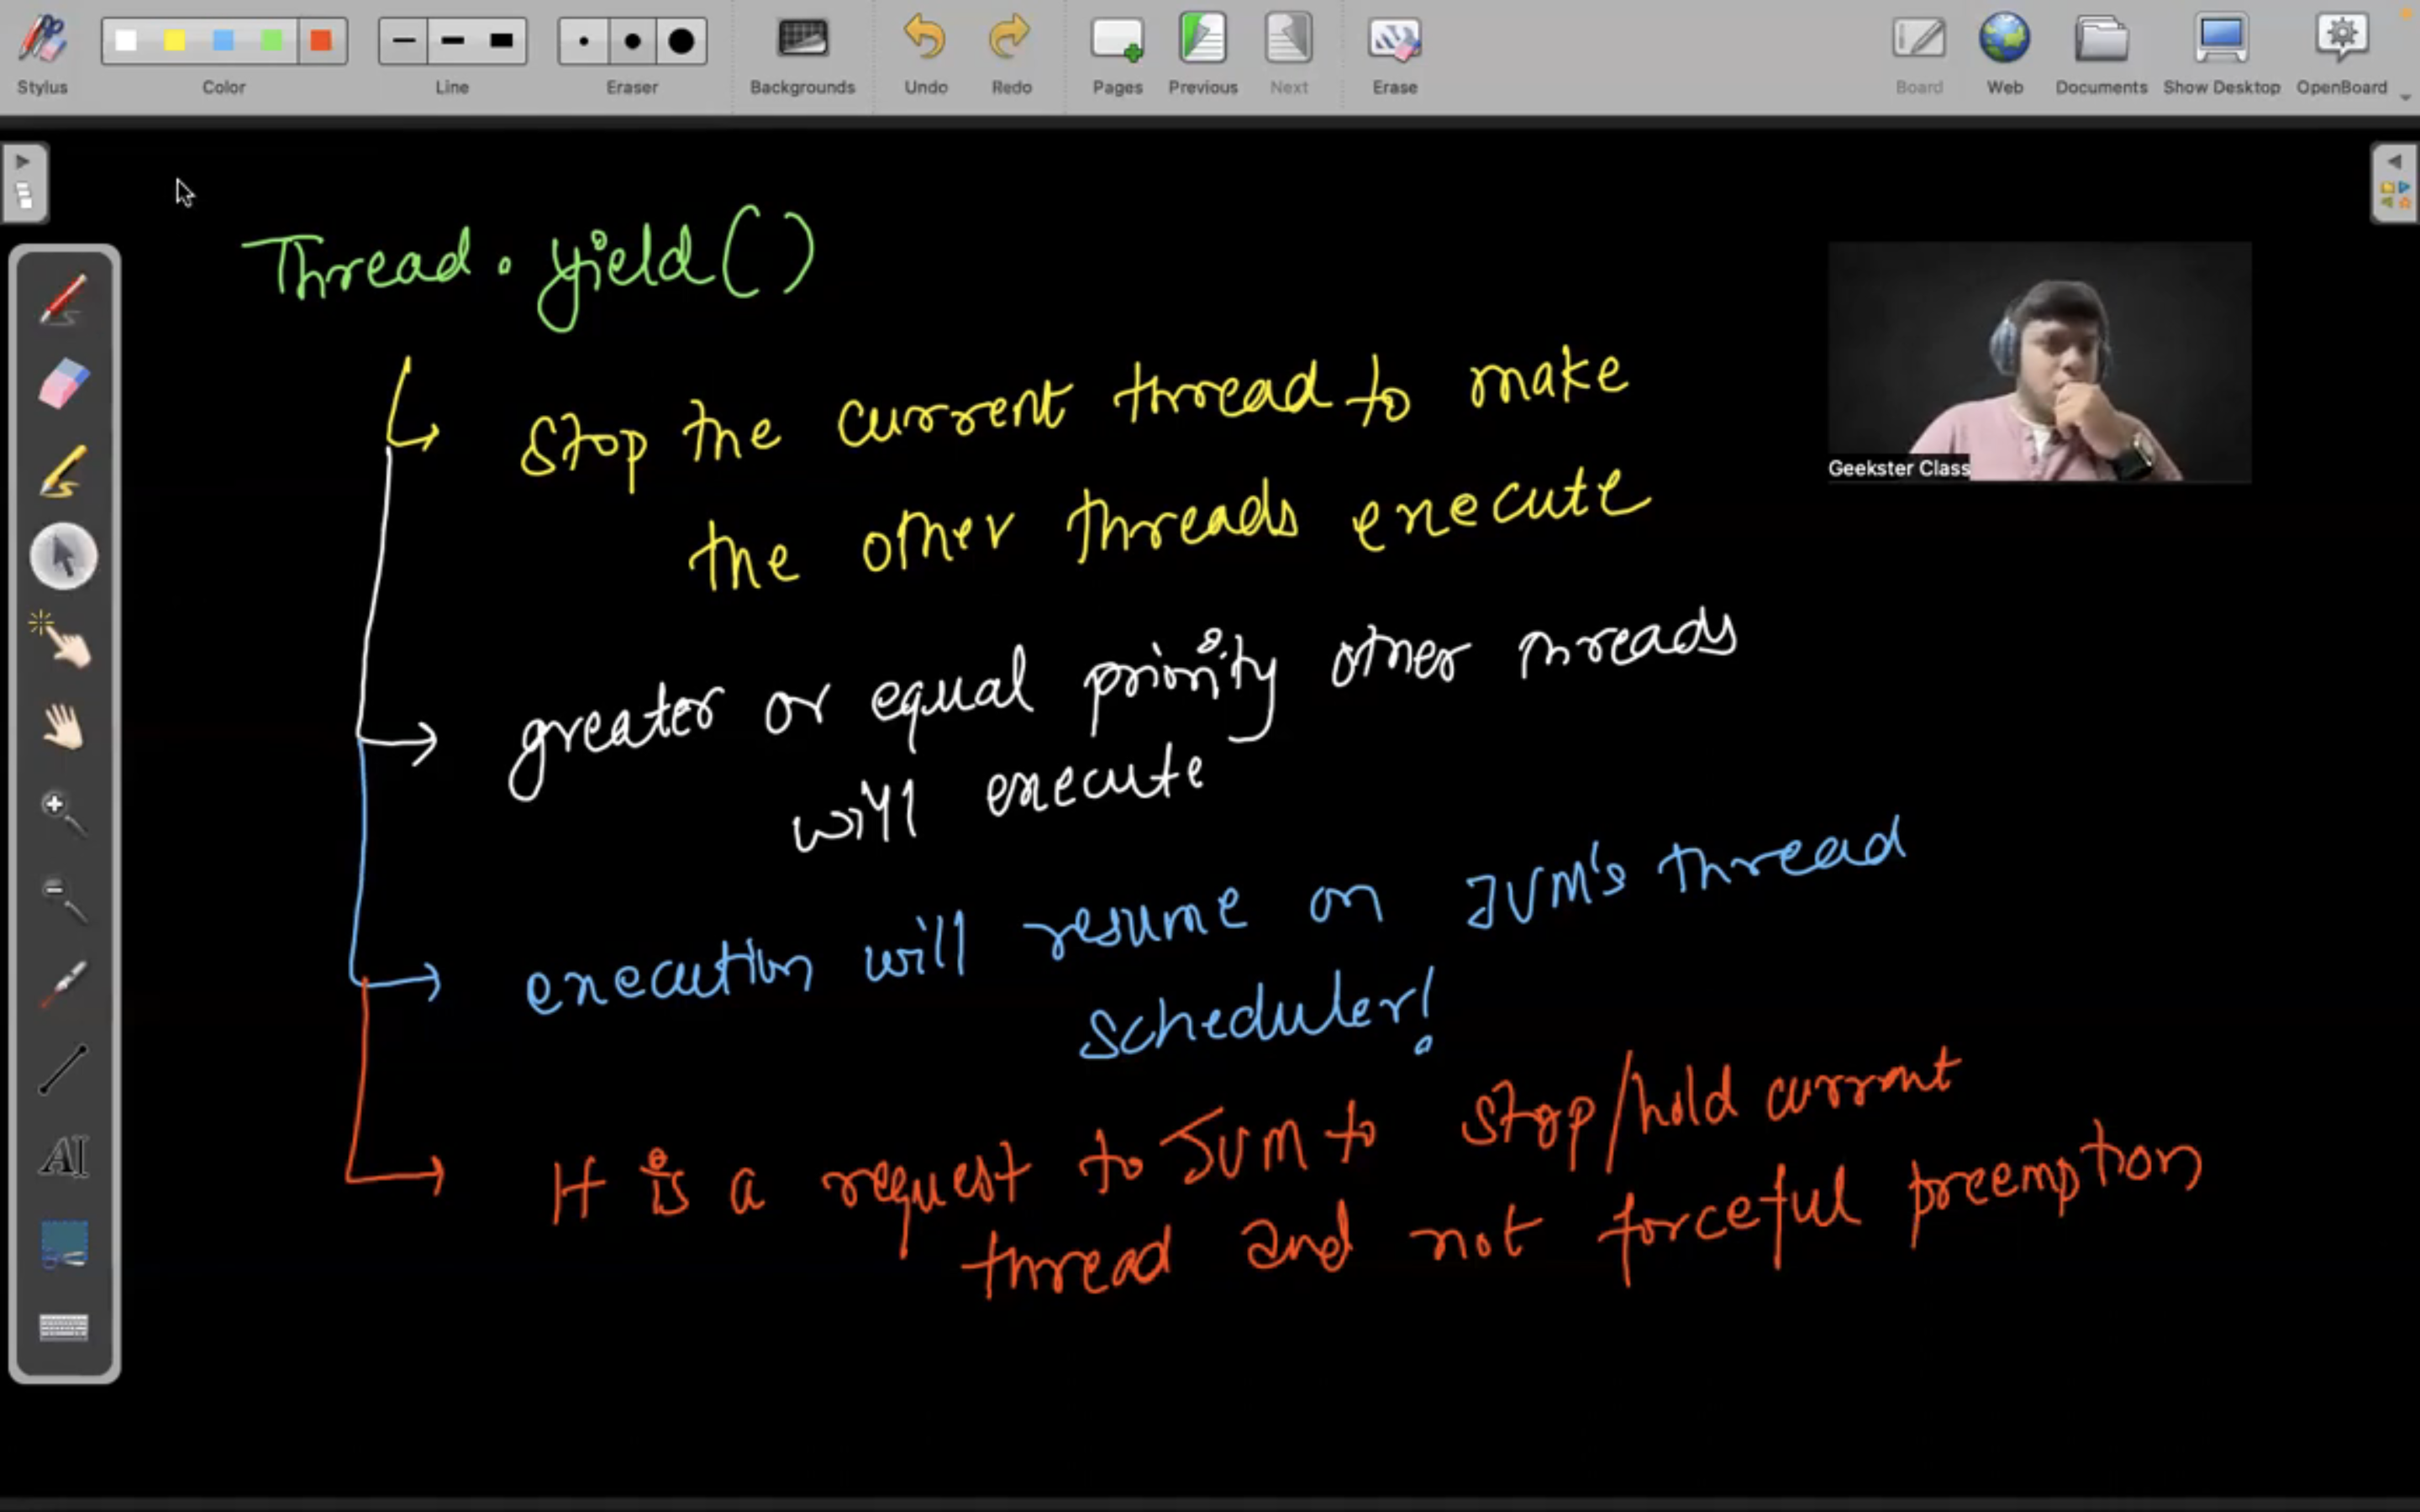 Stylus
Color
Line
Eraser
Backgrounds
Undo
Redo
Pages
Previous
Next
Erase
Board
Web
Documents
Show Desktop
OpenBoard
Thread.yield()
Stop the current thread to make
the other threads execute
greater or equal priority other threads
will execute
execution will resume on JVM's thread
scheduler!
It is a request to JVM to stop/hold current
thread and not forceful preemption
Geekster Class
AI